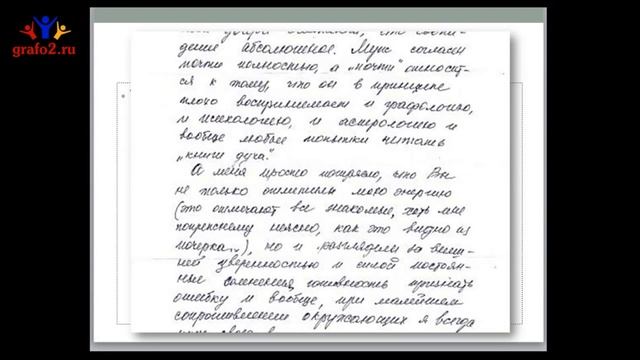 grafo2.ru
дение абсолютное. Муж согласен
почти полностью, а „почти" относит-
ся к тому, что он в принципе
плохо воспринимает и графологию,
и психологию, и астрологию и
вообще любые попытки читать
„книги духа".
А меня просто потрясло, что Вы
не только отметили мою энергию
(это отмечают все знакомые, хоть мне
по-прежнему неясно, как это видно из
почерка...), но и разглядели за внеш-
ней уверенностью и силой постоян-
ные сомнения, готовность признать
ошибку и вообще, при малейшем
сопротивлении окружающих я всегда